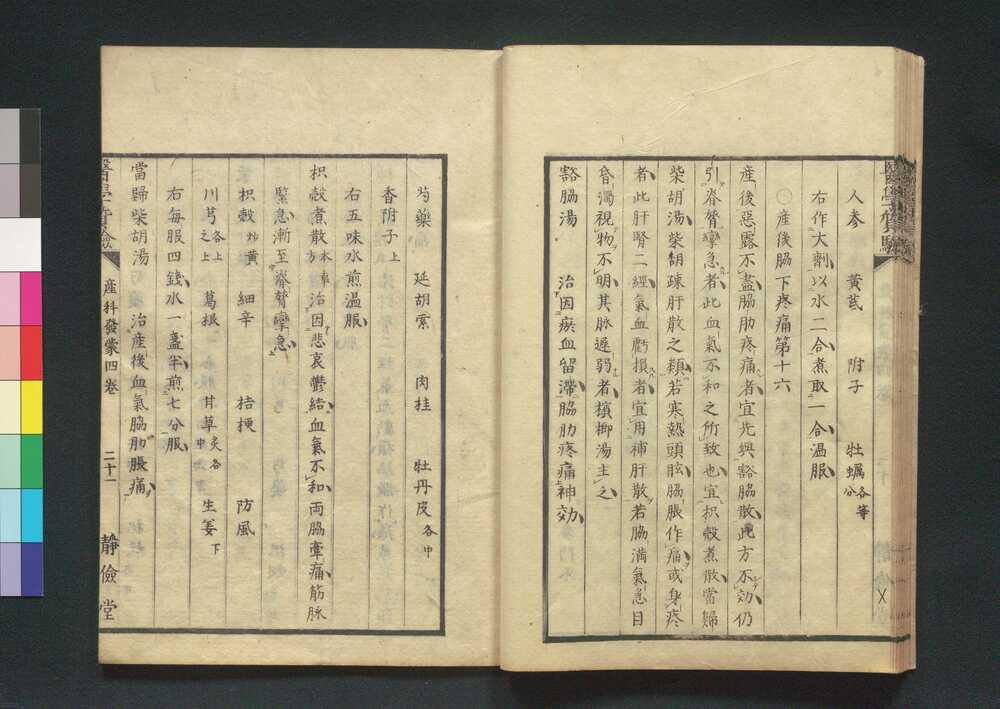 人参　黄芪　附子　牡蠣各等分
右作大劑以水二合煮取一合温服
〇産後脇下疼痛第十六
産後惡露不盡脇肋疼痛者宜先與豁脇散此方不効仍
引脊膂攣急者此血氣不和之所致也宜枳殻煮散當歸
柴胡湯柴胡疎肝散之類若寒熱頭眩脇脹作痛或身疼
者此肝腎二經氣血虧損者宜用補肝散若脇満氣急目
昏濁視物不明其脉遅弱者檳榔湯主之
豁脇湯　治因瘀血留滯脇肋疼痛神効
芍藥　延胡索　肉桂　牡丹皮各中
香附子上
右五味水煎温服
枳殻煮散本事方治因悲哀鬱結血氣不和両脇牽痛筋脉
緊急漸至脊膂攣急
枳殻炒黄　細辛　桔梗　防風
川芎各上之上　葛根　甘草炙各中　生姜下
右毎服四錢水一盞半煎七分服
當歸柴胡湯　治産後血氣脇肋脹痛
産科發蒙四巻　二十一　静儉堂